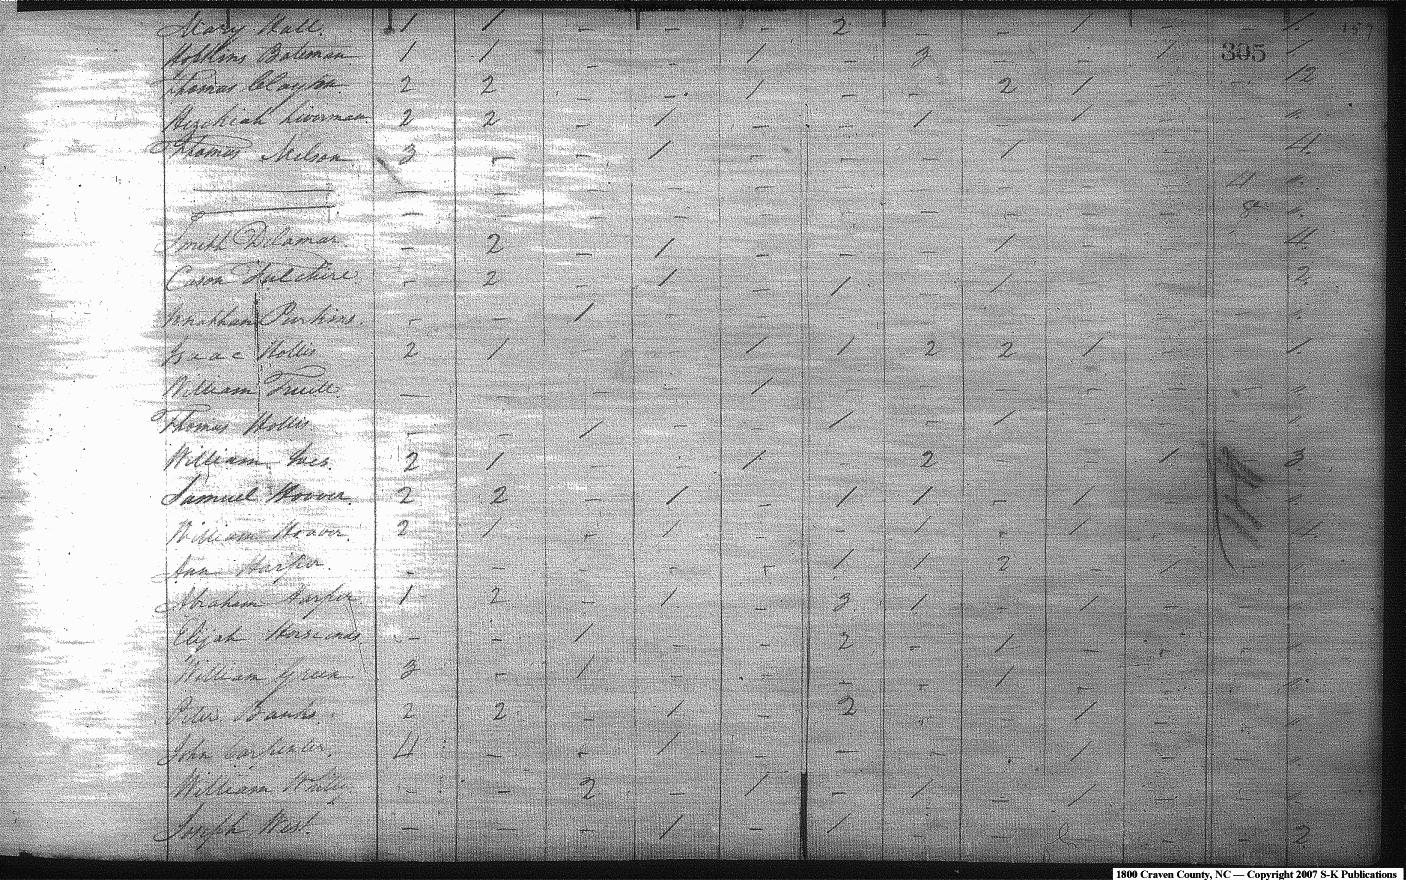 Mary Hall. 1 1 - - - 2 - - 1 - - 1 157
Hopkins Bateman 1 1 - - 1 - 3 - - 1 305 1
Thomas Clayton 2 2 - - 1 - - 2 1 - - 12
Hezekiah Liverman 2 2 - 1 - - 1 - 1 - - -
Thomas Nelson 3 - - 1 - - - 1 - - - 4
- - - - - - - - - - 4 -
- - - - - - - - - - 8 -
Smith Delamar. - 2 - 1 - - - 1 - - - 4
Cason Fulshire. - 2 - 1 - 1 - 1 - - - 2
Jonathan Perkins. - - 1 - - - - - - - - -
Isaac Hollis 2 1 - - 1 1 2 2 1 - - 1
William - - - - 1 - - - - - - -
Thomas Hollis - - 1 - - 1 - 1 - - - -
William Ives. 2 1 - - 1 - 2 - - 1 - 3
Samuel Hoover. 2 2 - 1 - 1 1 - 1 - - -
William Hoover. 2 1 - 1 - - 1 - 1 - -
Ann Harper. - - - - - 1 1 2 - 1 - -
Abraham Harper 1 2 - 1 - 3 1 - 1 - - -
Elijah - - 1 - - 2 - 1 - - - -
William Green 3 - 1 - - - - 1 - - - -
Peter Banks. 2 2 - 1 - 2 - - 1 - - -
John Carpenter. 4 - - 1 - - - - 1 - - -
William Whitty - - 2 - 1 - 1 - 1 - - -
Joseph West. - - - 1 - 1 - - - - 2
1800 Craven County, NC — Copyright 2007 S-K Publications